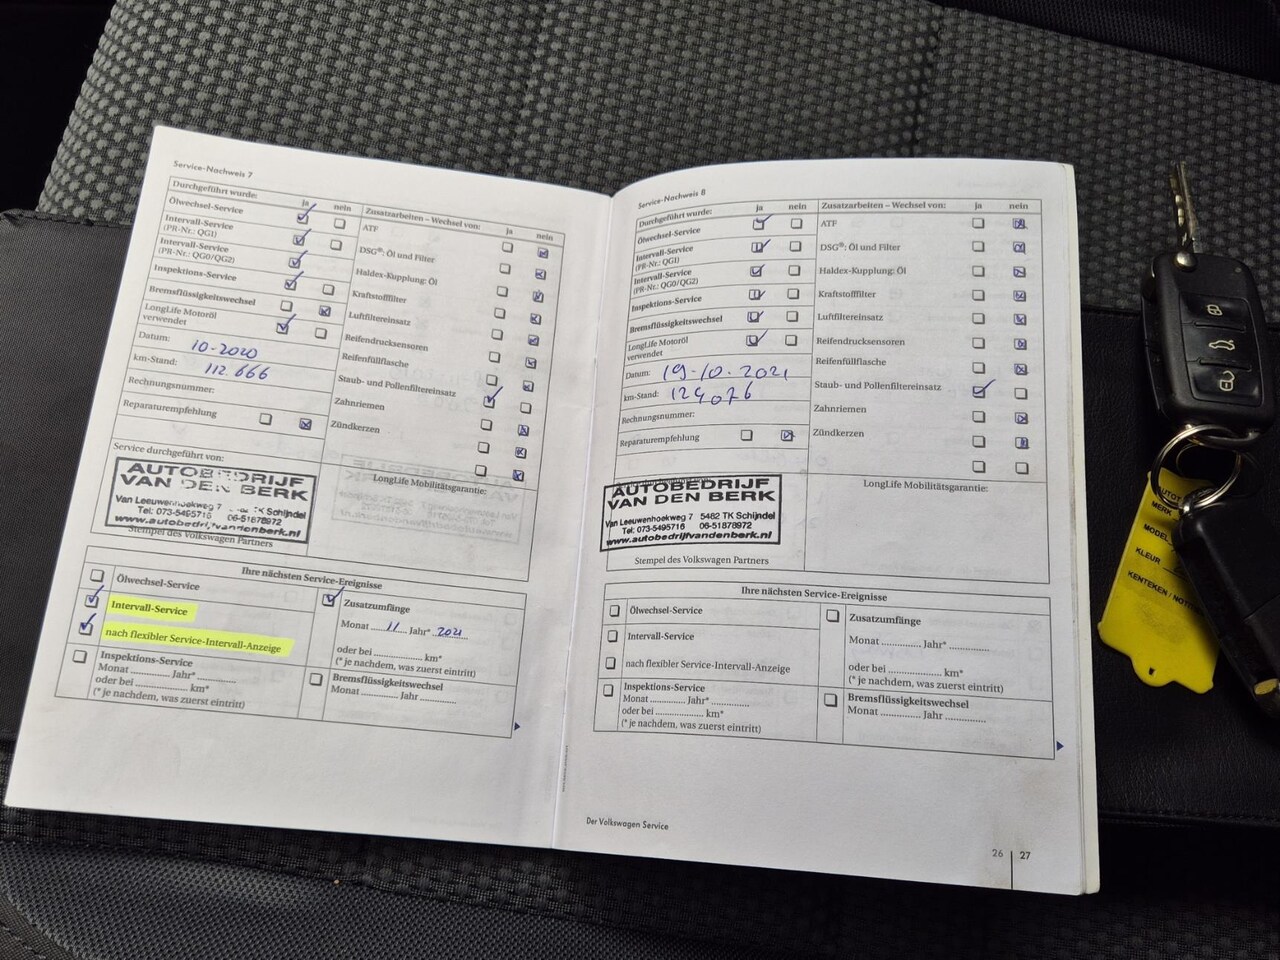 Service-Nachweis 7
Durchgeführt wurde: ja nein
Ölwechsel-Service
Intervall-Service
(PR-Nr.: QG1)
Intervall-Service
(PR-Nr.: QG0/QG2)
Inspektions-Service
Bremsflüssigkeitswechsel
LongLife Motoröl
verwendet
Datum: 10-2020
km-Stand: 112.666
Rechnungsnummer:
Reparaturempfehlung
Zusatzarbeiten – Wechsel von: ja nein
ATF
DSG®: Öl und Filter
Haldex-Kupplung: Öl
Kraftstofffilter
Luftfiltereinsatz
Reifendrucksensoren
Reifenfüllflasche
Staub- und Pollenfiltereinsatz
Zahnriemen
Zündkerzen
Service durchgeführt von:
AUTOBEDRIJF
VAN DEN BERK
Van Leeuwenhoekweg 7 TK Schijndel
Tel: 073-5495716 06-51878972
www.autobedrijfvandenberk.nl
Stempel des Volkswagen Partners
LongLife Mobilitätsgarantie:
Ihre nächsten Service-Ereignisse
Ölwechsel-Service
Intervall-Service
nach flexibler Service-Intervall-Anzeige
Inspektions-Service
Monat ............ Jahr* ............
oder bei ............ km*
(* je nachdem, was zuerst eintritt)
Zusatzumfänge
Monat 11 Jahr* 2021
oder bei ............ km*
(* je nachdem, was zuerst eintritt)
Bremsflüssigkeitswechsel
Monat ............ Jahr ............
Service-Nachweis 8
Durchgeführt wurde: ja nein
Ölwechsel-Service
Intervall-Service
(PR-Nr.: QG1)
Intervall-Service
(PR-Nr.: QG0/QG2)
Inspektions-Service
Bremsflüssigkeitswechsel
LongLife Motoröl
verwendet
Datum: 19-10-2021
km-Stand: 124076
Rechnungsnummer:
Reparaturempfehlung
Zusatzarbeiten – Wechsel von: ja nein
ATF
DSG®: Öl und Filter
Haldex-Kupplung: Öl
Kraftstofffilter
Luftfiltereinsatz
Reifendrucksensoren
Reifenfüllflasche
Staub- und Pollenfiltereinsatz
Zahnriemen
Zündkerzen
AUTOBEDRIJF
VAN DEN BERK
Van Leeuwenhoekweg 7 5482 TK Schijndel
Tel: 073-5495716 06-51878972
www.autobedrijfvandenberk.nl
Stempel des Volkswagen Partners
LongLife Mobilitätsgarantie:
Ihre nächsten Service-Ereignisse
Ölwechsel-Service
Intervall-Service
nach flexibler Service-Intervall-Anzeige
Inspektions-Service
Monat ............ Jahr* ............
oder bei ............ km*
(* je nachdem, was zuerst eintritt)
Zusatzumfänge
Monat ............ Jahr* ............
oder bei ............ km*
(* je nachdem, was zuerst eintritt)
Bremsflüssigkeitswechsel
Monat ............ Jahr ............
Der Volkswagen Service
26 27
MERK
MODEL
KLEUR
KENTEKEN /